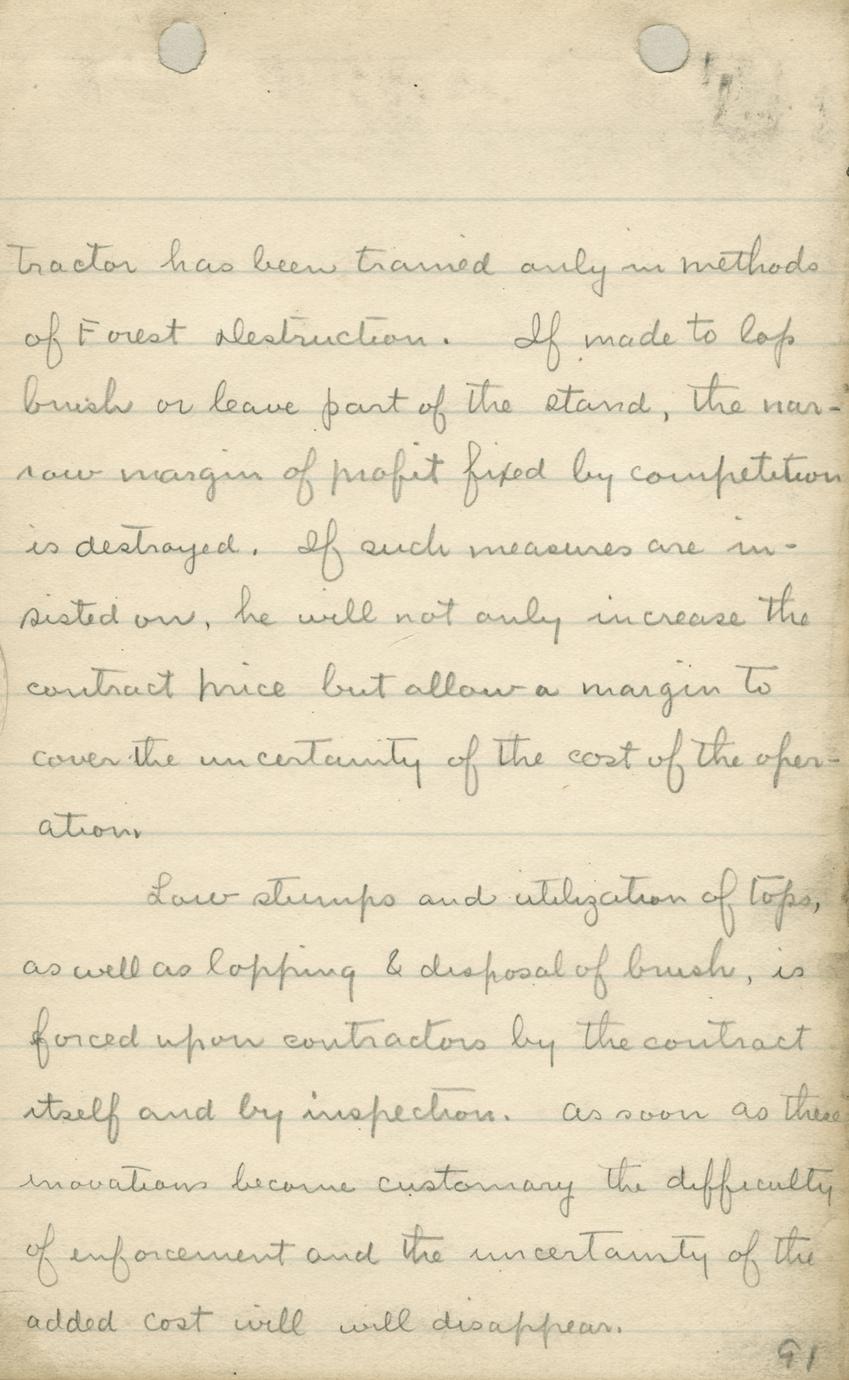 tractor has been trained only in methods
of Forest Destruction. If made to lop
brush or leave part of the stand, the nar-
row margin of profit fixed by competition
is destroyed. If such measures are in-
sisted on, he will not only increase the
contract price but allow a margin to
cover the uncertainty of the cost of the oper-
ation.
Low stumps and utilization of tops,
as well as lopping & disposal of brush, is
forced upon contractors by the contract
itself and by inspection. As soon as these
inovations become customary the difficulty
of enforcement and the uncertainty of the
added cost will will disappear.
91